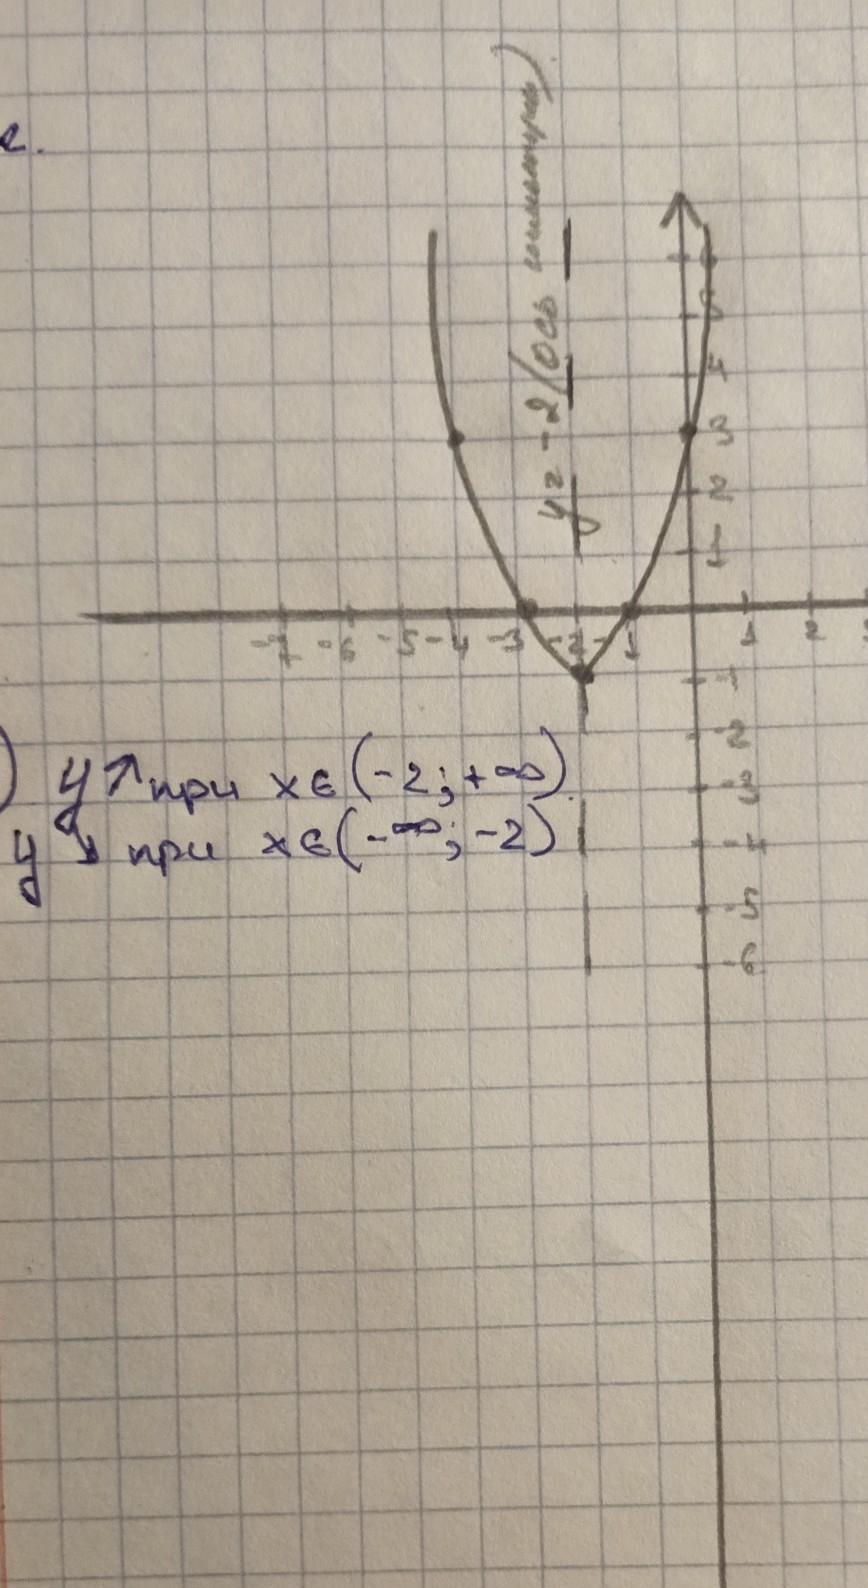 с.
y=-2(Ось симметрии)
6
5
4
3
2
1
-7 -6 -5 -4 -3 -2 -1 1 2 3
-1
-2
-3
-4
-5
-6
) y↗ при x∈(-2;+∞)
y↘ при x∈(-∞;-2)